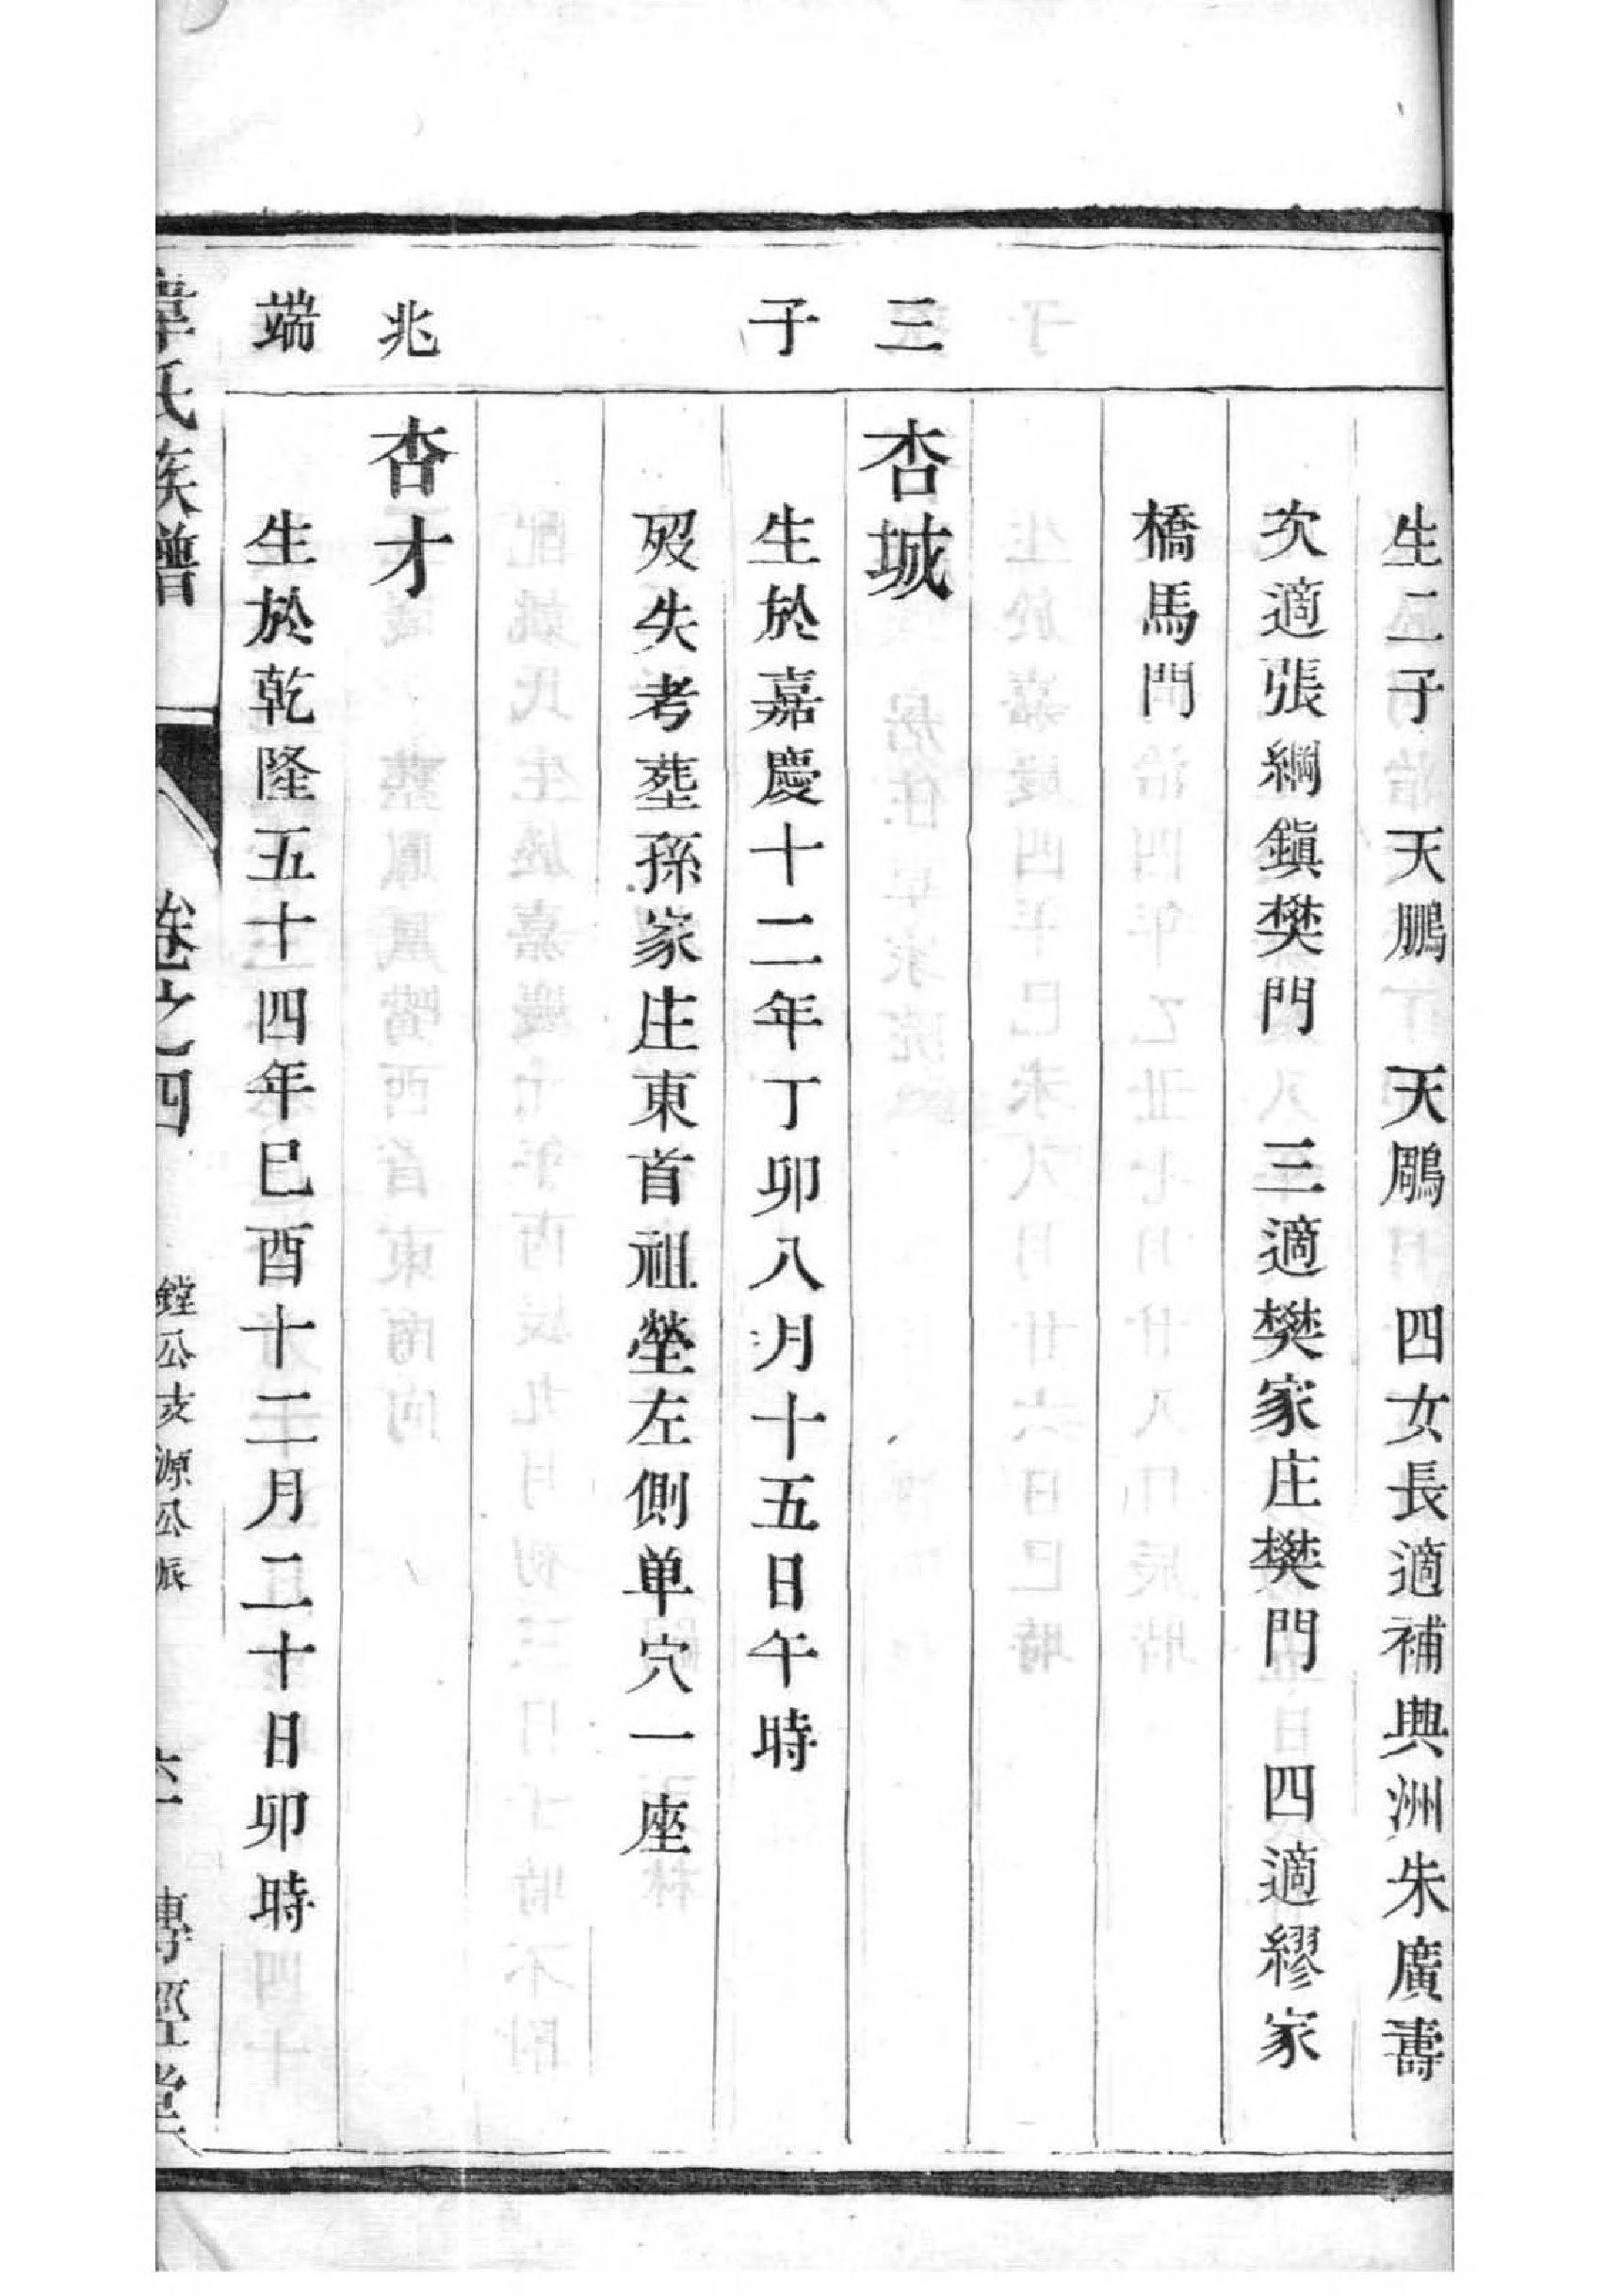 生二子 天鵬 天鵰 四女長適補典洲朱廣壽
次適張綱鎭樊門 三適樊家庄樊門 四適繆家
橋馬門
三 杏城
子 生於嘉慶十二年丁卯八月十五日午時
歿失考塟孫家庄東首祖塋左側单穴一座
兆 杏才
端 生於乾隆五十四年巳酉十二月二十日卯時
韋氏族譜 卷之四 鏜公支源公派 傳經堂